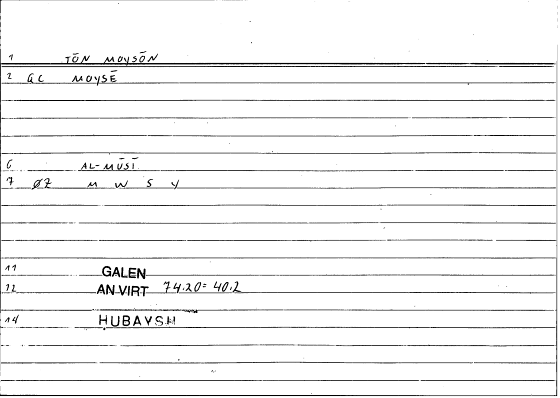 1 TŌN MOYSŌN
2 GC MOYSĒ
6 AL-MŪSĪ
7 ØZ M W S Y
11 GALEN
12 AN VIRT 74.20= 40.2
14 HUBAYSH